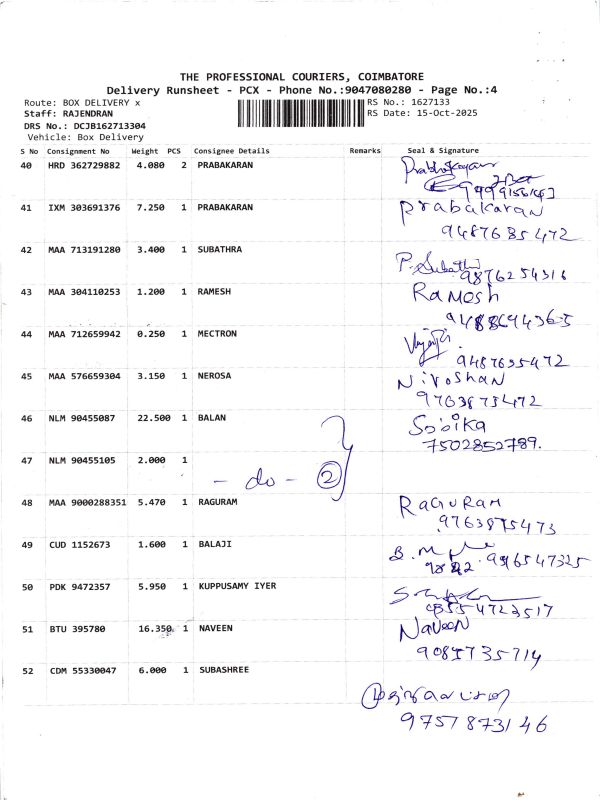 THE PROFESSIONAL COURIERS, COIMBATORE
Delivery Runsheet - PCX - Phone No.:9047080280 - Page No.:4
Route: BOX DELIVERY x RS No.: 1627133
Staff: RAJENDRAN RS Date: 15-Oct-2025
DRS No.: DCJB162713304
Vehicle: Box Delivery
S No Consignment No Weight PCS Consignee Details Remarks Seal & Signature
40 HRD 362729882 4.080 2 PRABAKARAN Prabhakaran
41 IXM 303691376 7.250 1 PRABAKARAN Prabakaran
9487635472
42 MAA 713191280 3.400 1 SUBATHRA P. Subathra
9876254316
43 MAA 304110253 1.200 1 RAMESH RaMosh
9488694365
44 MAA 712659942 0.250 1 MECTRON
9487635472
45 MAA 576659304 3.150 1 NEROSA NiroShaN
9763873472
46 NLM 90455087 22.500 1 BALAN Sobika
7502852789.
47 NLM 90455105 2.000 1
- do - 2
48 MAA 9000288351 5.470 1 RAGURAM RAGURAM
9763875473
49 CUD 1152673 1.600 1 BALAJI
996547325
50 PDK 9472357 5.950 1 KUPPUSAMY IYER
51 BTU 395780 16.350 1 NAVEEN NaVeeN
9085735714
52 CDM 55330047 6.000 1 SUBASHREE
9757873146